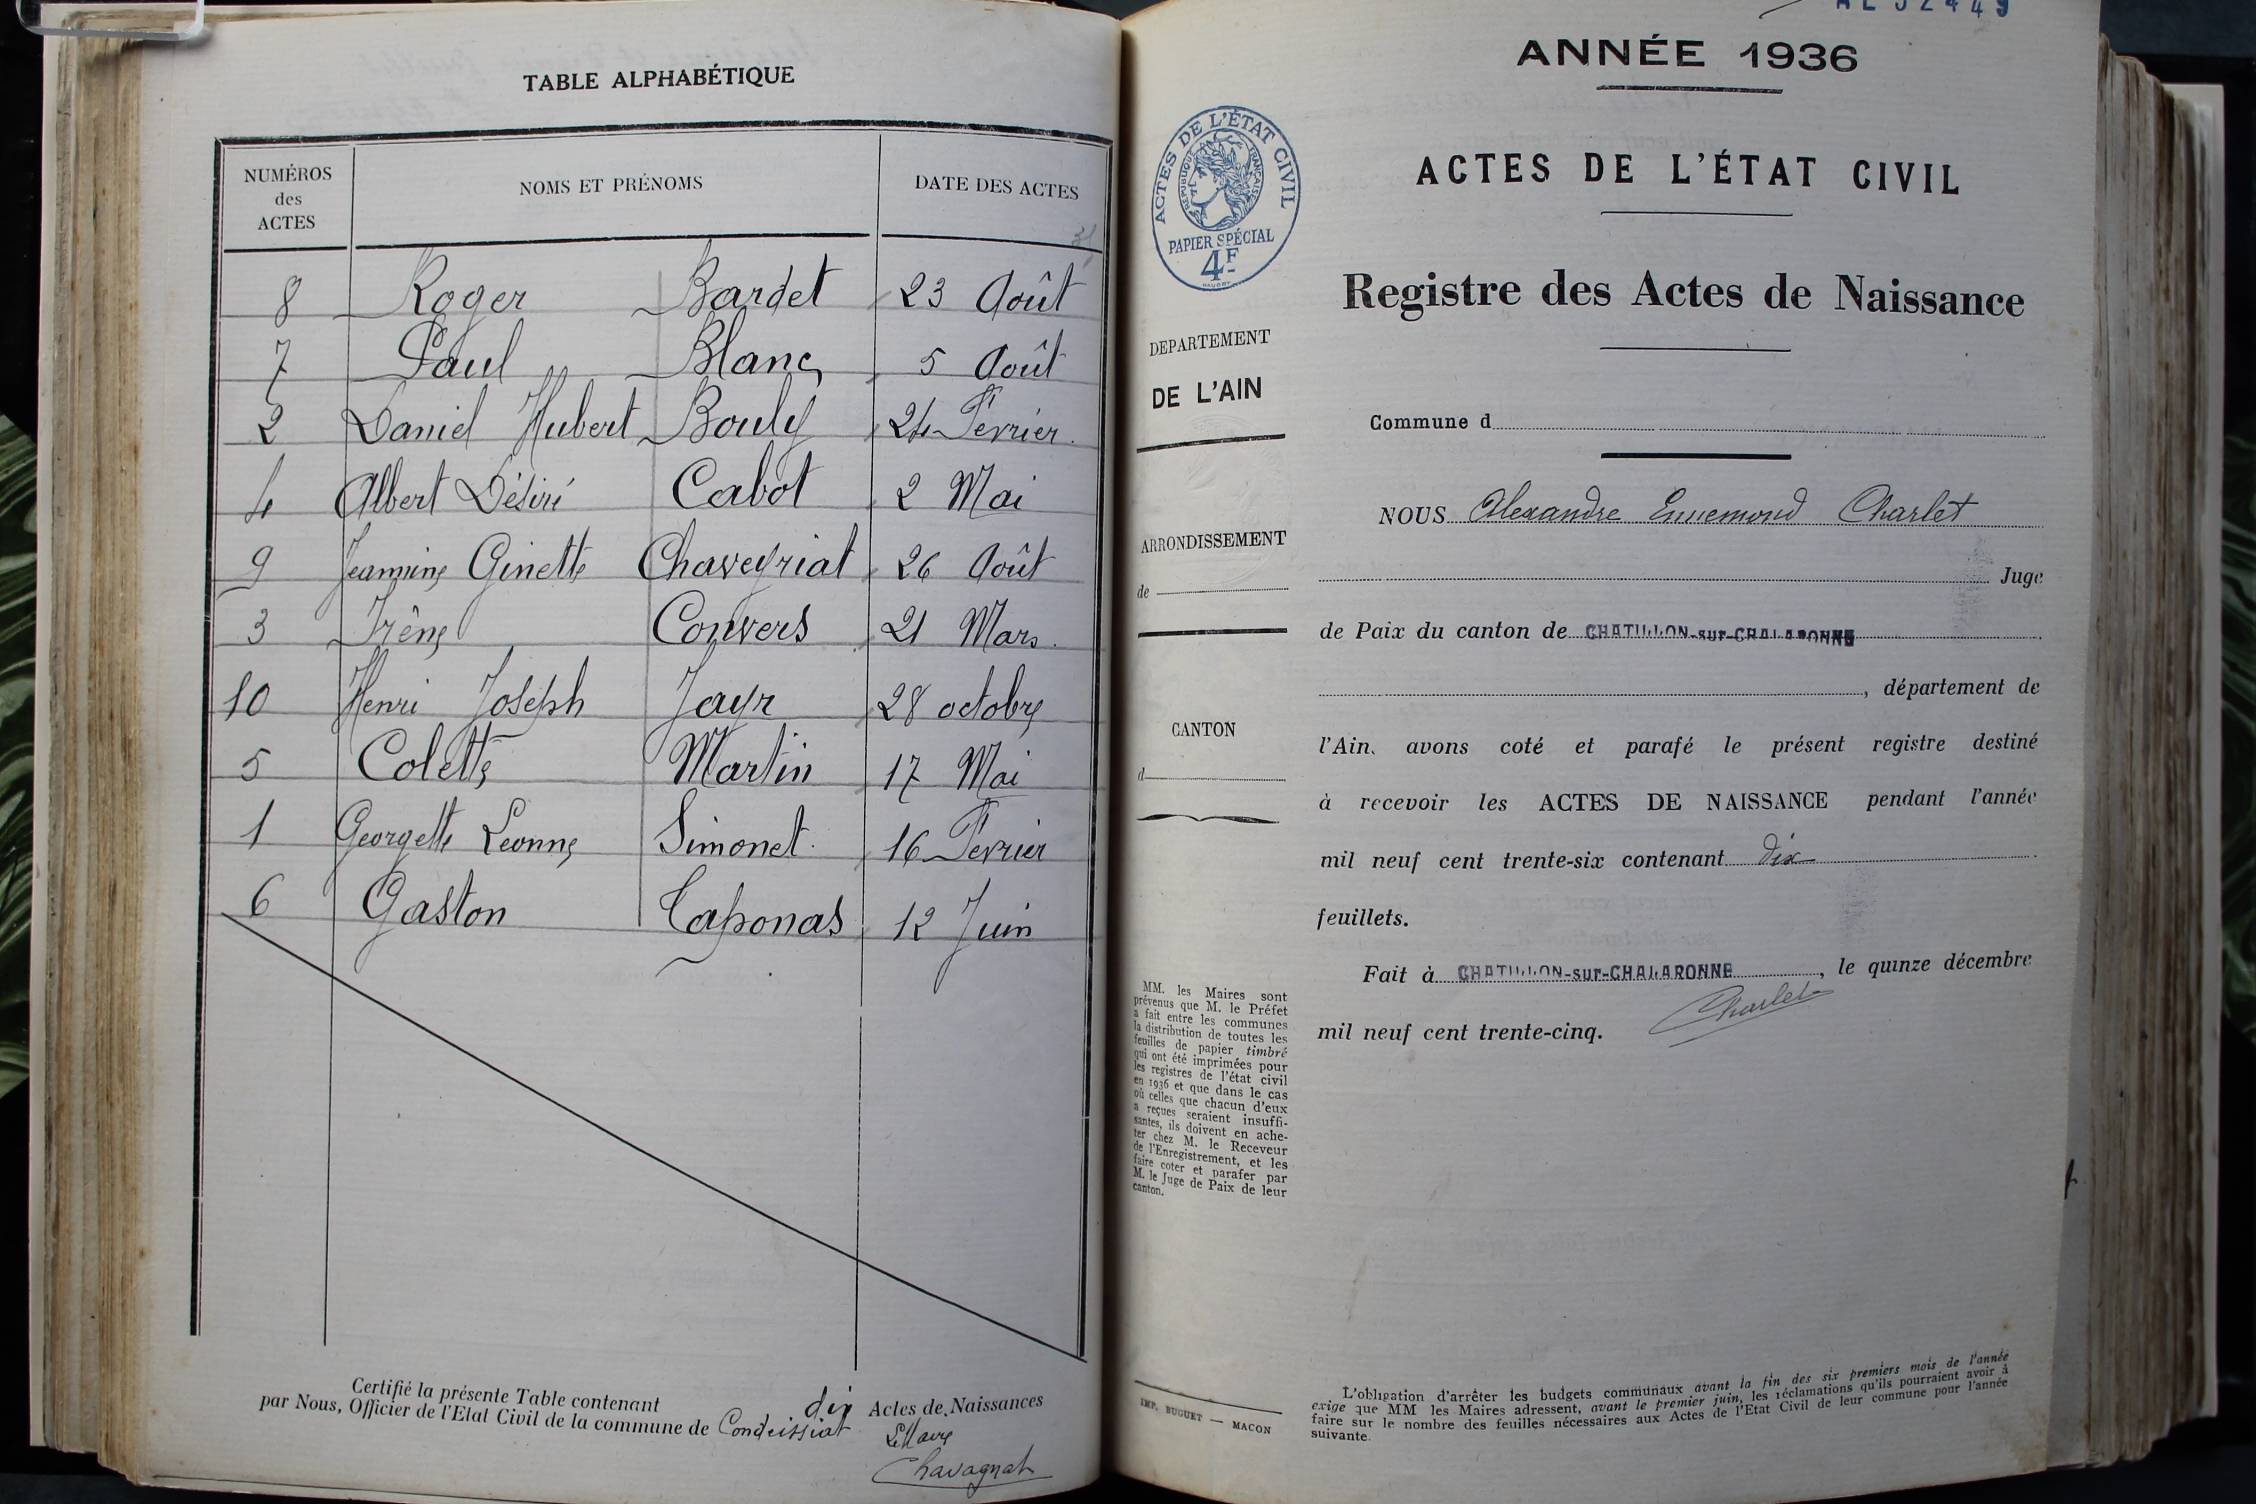 TABLE ALPHABÉTIQUE
NUMÉROS des ACTES NOMS ET PRÉNOMS DATE DES ACTES
8 Roger Bardet 23 Août
7 Paul Blanc 5 Août
2 Daniel Hubert Bouly 24 Février
4 Albert Désiré Cabot 2 Mai
9 Jeannine Ginette Chaveyriat 26 Août
3 Irène Convers 21 Mars
10 Henri Joseph Jayr 28 octobre
5 Colette Martin 17 Mai
1 Georgette Leonne Simonet 16 Février
6 Gaston Taponas 12 Juin
Certifié la présente Table contenant dix Actes de Naissances
par Nous, Officier de l'Etat Civil de la commune de Condeissiat
Le Maire
Chavagnat
ANNÉE 1936
ACTES DE L'ÉTAT CIVIL
RÉPUBLIQUE FRANÇAISE
PAPIER SPÉCIAL
4F
ACTES DE L'ÉTAT CIVIL
Registre des Actes de Naissance
DEPARTEMENT
DE L'AIN
ARRONDISSEMENT
de
CANTON
d
MM. les Maires sont
prévenus que M. le Préfet
a fait entre les communes
la distribution de toutes les
feuilles de papier timbré
qui ont été imprimées pour
les registres de l'état civil
en 1936 et que dans le cas
où celles que chacun d'eux
a reçues seraient insuffi-
santes, ils doivent en ache-
ter chez M. le Receveur
de l'Enregistrement, et les
faire coter et parafer par
M. le Juge de Paix de leur
canton.
IMP. BUGUET — MACON
Commune d
NOUS Alexandre Ennemond Charlet
Juge
de Paix du canton de CHATILLON-sur-CHALARONNE
, département de
l'Ain, avons coté et parafé le présent registre destiné
à recevoir les ACTES DE NAISSANCE pendant l'année
mil neuf cent trente-six contenant dix
feuillets.
Fait à CHATILLON-sur-CHALARONNE, le quinze décembre
mil neuf cent trente-cinq. Charlet
L'obligation d'arrêter les budgets communaux avant la fin des six premiers mois de l'année
exige que MM les Maires adressent, avant le premier juin, les réclamations qu'ils pourraient avoir à
faire sur le nombre des feuilles nécessaires aux Actes de l'Etat Civil de leur commune pour l'année
suivante.